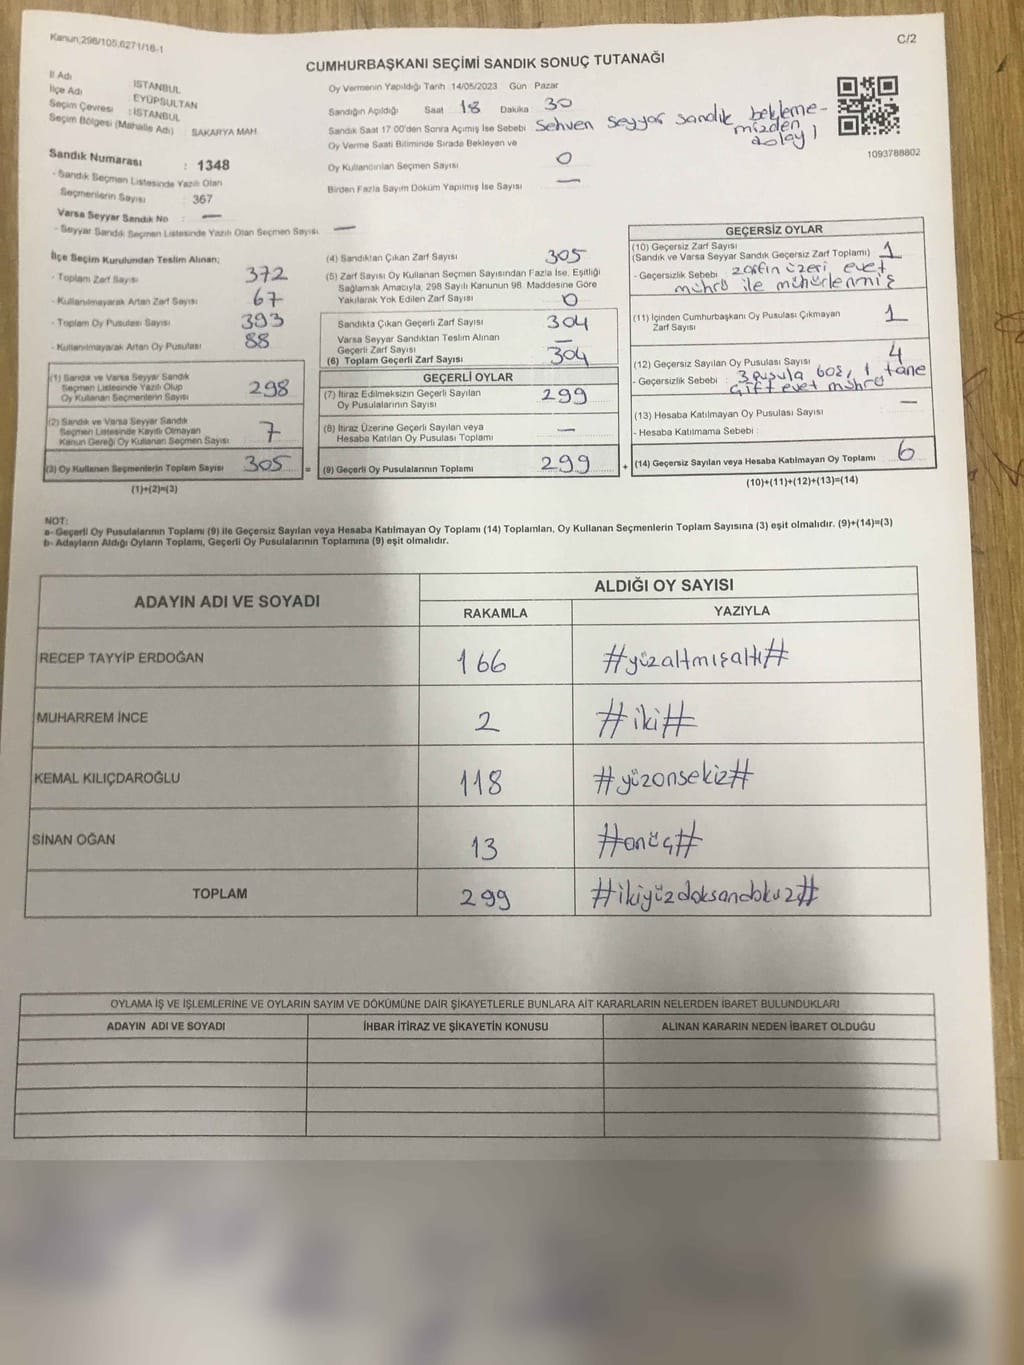 Kanun:298/105,6271/16-1
C/2
CUMHURBAŞKANI SEÇİMİ SANDIK SONUÇ TUTANAĞI
İl Adı : İSTANBUL
İlçe Adı : EYÜPSULTAN
Seçim Çevresi : İSTANBUL
Seçim Bölgesi (Mahalle Adı) : SAKARYA MAH.
Sandık Numarası : 1348
- Sandık Seçmen Listesinde Yazılı Olan
Seçmenlerin Sayısı : 367
Varsa Seyyar Sandık No : —
- Seyyar Sandık Seçmen Listesinde Yazılı Olan Seçmen Sayısı: —
Oy Vermenin Yapıldığı Tarih :14/05/2023 Gün Pazar
Sandığın Açıldığı Saat 18 Dakika 30
Sandık Saat 17.00'den Sonra Açılmış İse Sebebi Sehven seyyar sandık bekleme-
mizden
dolayı
Oy Verme Saati Bitiminde Sırada Bekleyen ve
Oy Kullandırılan Seçmen Sayısı 0
Birden Fazla Sayım Döküm Yapılmış İse Sayısı —
1093788802
İlçe Seçim Kurulundan Teslim Alınan;
- Toplam Zarf Sayısı : 372
- Kullanılmayarak Artan Zarf Sayısı : 67
- Toplam Oy Pusulası Sayısı : 393
- Kullanılmayarak Artan Oy Pusulası : 88
(1) Sandık ve Varsa Seyyar Sandık
Seçmen Listesinde Yazılı Olup
Oy Kullanan Seçmenlerin Sayısı 298
(2) Sandık ve Varsa Seyyar Sandık
Seçmen Listesinde Kayıtlı Olmayan
Kanun Gereği Oy Kullanan Seçmen Sayısı 7
(3) Oy Kullanan Seçmenlerin Toplam Sayısı 305 =
(1)+(2)=(3)
(4) Sandıktan Çıkan Zarf Sayısı 305
(5) Zarf Sayısı Oy Kullanan Seçmen Sayısından Fazla İse, Eşitliği
Sağlamak Amacıyla, 298 Sayılı Kanunun 98. Maddesine Göre
Yakılarak Yok Edilen Zarf Sayısı 0
Sandıkta Çıkan Geçerli Zarf Sayısı 304
Varsa Seyyar Sandıktan Teslim Alınan
Geçerli Zarf Sayısı —
(6) Toplam Geçerli Zarf Sayısı 304
GEÇERLİ OYLAR
(7) İtiraz Edilmeksizin Geçerli Sayılan
Oy Pusulalarının Sayısı 299
(8) İtiraz Üzerine Geçerli Sayılan veya
Hesaba Katılan Oy Pusulası Toplamı —
(9) Geçerli Oy Pusulalarının Toplamı 299 +
GEÇERSİZ OYLAR
(10) Geçersiz Zarf Sayısı
(Sandık ve Varsa Seyyar Sandık Geçersiz Zarf Toplamı) 1
- Geçersizlik Sebebi : zarfın üzeri evet
mührü ile mühürlenmiş
(11) İçinden Cumhurbaşkanı Oy Pusulası Çıkmayan
Zarf Sayısı 1
(12) Geçersiz Sayılan Oy Pusulası Sayısı 4
- Geçersizlik Sebebi : 3 pusula boş, 1 tane
çift evet mührü
(13) Hesaba Katılmayan Oy Pusulası Sayısı —
- Hesaba Katılmama Sebebi :
(14) Geçersiz Sayılan veya Hesaba Katılmayan Oy Toplamı 6
(10)+(11)+(12)+(13)=(14)
NOT:
a- Geçerli Oy Pusulalarının Toplamı (9) ile Geçersiz Sayılan veya Hesaba Katılmayan Oy Toplamı (14) Toplamları, Oy Kullanan Seçmenlerin Toplam Sayısına (3) eşit olmalıdır. (9)+(14)=(3)
b- Adayların Aldığı Oyların Toplamı, Geçerli Oy Pusulalarının Toplamına (9) eşit olmalıdır.
ADAYIN ADI VE SOYADI
ALDIĞI OY SAYISI
RAKAMLA YAZIYLA
RECEP TAYYİP ERDOĞAN 166 #yüzaltmışaltı#
MUHARREM İNCE 2 #iki#
KEMAL KILIÇDAROĞLU 118 #yüzonsekiz#
SİNAN OĞAN 13 #onüç#
TOPLAM 299 #ikiyüzdoksandokuz#
OYLAMA İŞ VE İŞLEMLERİNE VE OYLARIN SAYIM VE DÖKÜMÜNE DAİR ŞİKAYETLERLE BUNLARA AİT KARARLARIN NELERDEN İBARET BULUNDUKLARI
ADAYIN ADI VE SOYADI İHBAR İTİRAZ VE ŞİKAYETİN KONUSU ALINAN KARARIN NEDEN İBARET OLDUĞU